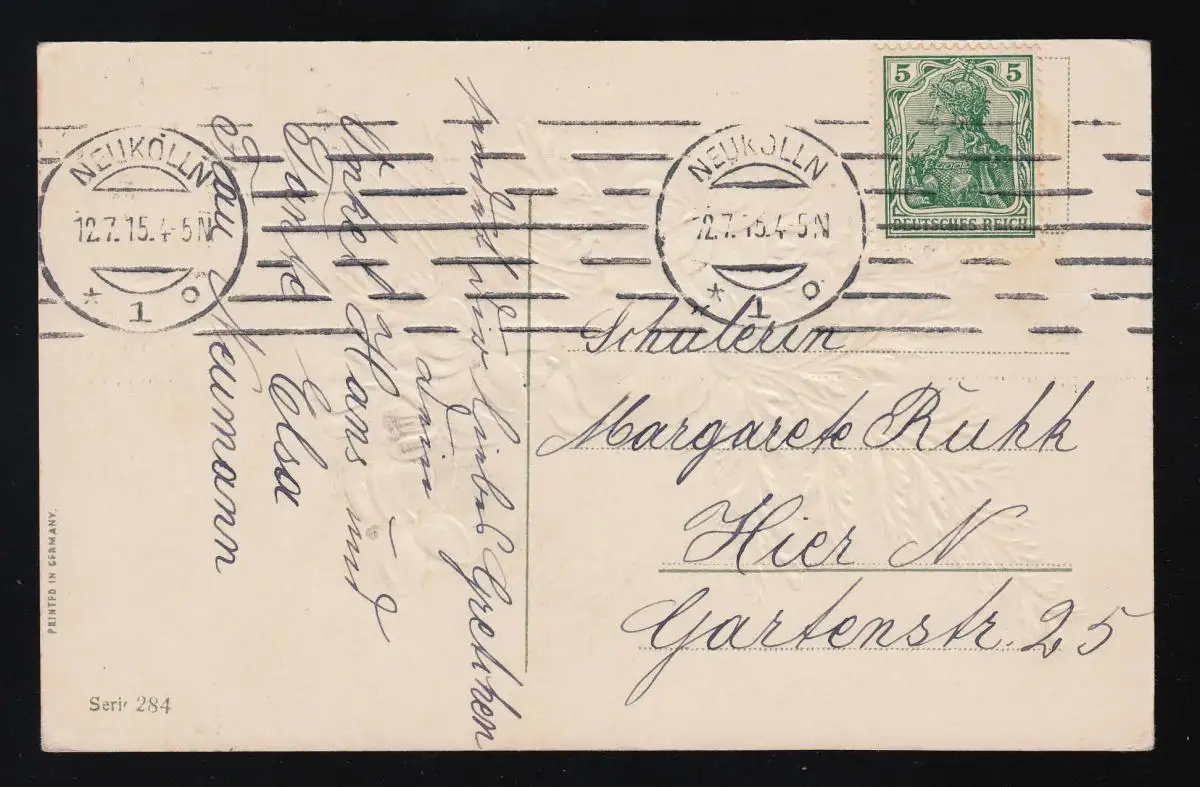 NEUKÖLLN
12.7.15.4-5N
* 1 o
NEUKÖLLN
12.7.15.4-5N
* 1 o
5 5
DEUTSCHES REICH
Schülerin
Margarete Ruhk
Hier N
Gartenstr. 25
wünscht dir liebes Gretchen
dein
Onkel Hans und
Tante Elsa
Frau Neumann
PRINTED IN GERMANY.
Serie 284